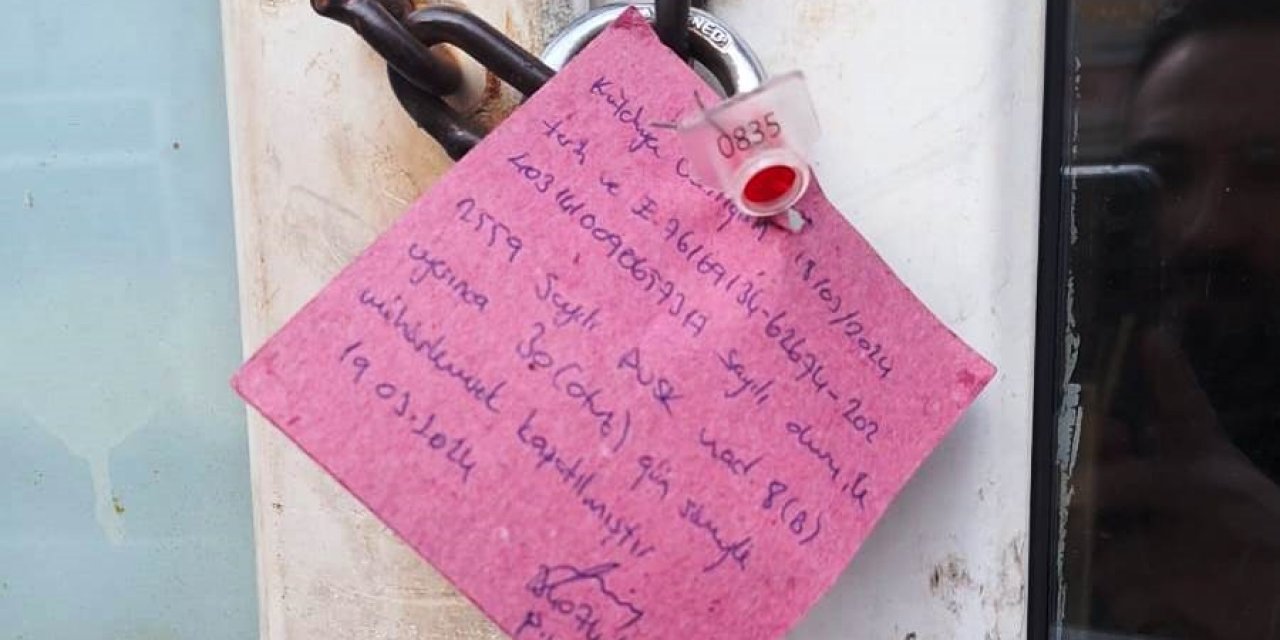 NED
0835
Kütahya Valiliğinin 18/03/2024
tarih ve E-76169134-62674-202
40316100906579317 Sayılı oluru ile
2559 Sayılı PVSK mad 8(B)
uyarınca 30(otuz) gün süreyle
mühürlenerek kapatılmıştır
19.03.2024